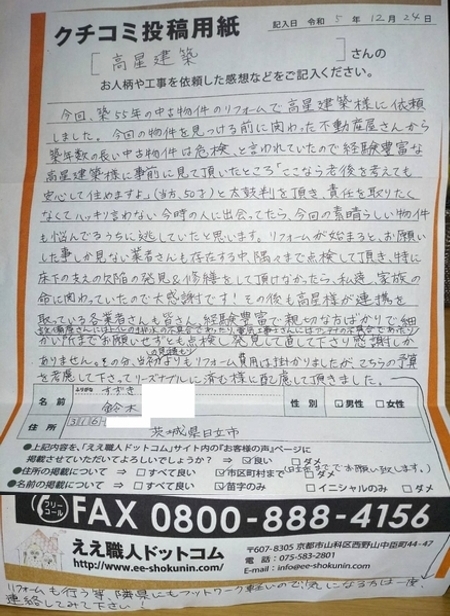 クチコミ投稿用紙
記入日 令和 5 年 12 月 24 日
[高星建築]さんの
お人柄や工事を依頼した感想などをご記入ください。
今回、築55年の中古物件のリフォームで高星建築様に依頼
しました。今回の物件を見つける前に関わった不動産屋さんから
築年数の長い中古物件は危検、と言われていたので経験豊富な
高星建築様に事前に見て頂いたところ「ここなら老後を考えても
安心して住めますよ」(当方、50才)と太鼓判を頂き、責任を取りたく
なくてハッキリ言わない今時の人に出会ってたら、今回の素晴らしい物件
も悩んでるうちに逃していたと思います。リフォームが始まると、お願い
した事しか見ない業者さんも存在する中、隅々まで点検して頂き、特に
床下の支えの欠陥の発見&修繕をして頂けなかったら、私達、家族の
命に関わっていたので大感謝です!その後も高星様が連携を
取っている各業者さんも皆さん、経験豊富で親切な方ばかりで細
かい所までお願いせずとも点検し発見して直して下さり感謝しか
ありません。その分、当初よりもリフォーム費用は掛かりましたが、こちらの予算
を考慮して下さってリーズナブルに済む様に配慮して頂きました。
ふりがな すずき
名前 鈴木 性別 ☑男性 □女性
住所 茨城県日立市
●上記内容を、「ええ職人ドットコム」サイト内の『お客様の声』ページに
掲載させていただいてよろしいでしょうか? ⇒ ☑良い □ダメ
●住所の掲載について ⇒ □すべて良い ☑市区町村まで
●名前の掲載について ⇒ □すべて良い ☑苗字のみ □イニシャルのみ □ダメ
フリーコール FAX 0800-888-4156
ええ職人ドットコム
http://www.ee-shokunin.com/
〒607-8305 京都市山科区西野山中臣町44-47
電話:075-583-2801
E-mail:info@ee-shokunin.com
リフォームも行う等、隣県にもフットワーク軽いので気になる方は一度、
連絡してみて下さい!